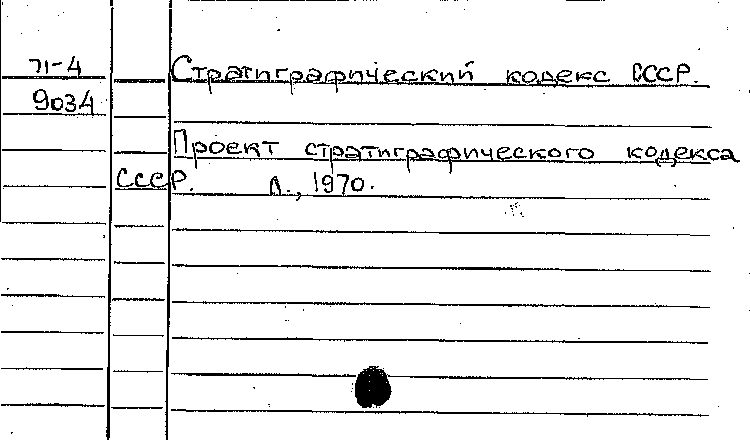 71-4 Стратиграфический кодекс СССР.
9034
Проект стратиграфического кодекса
СССР. Л., 1970.